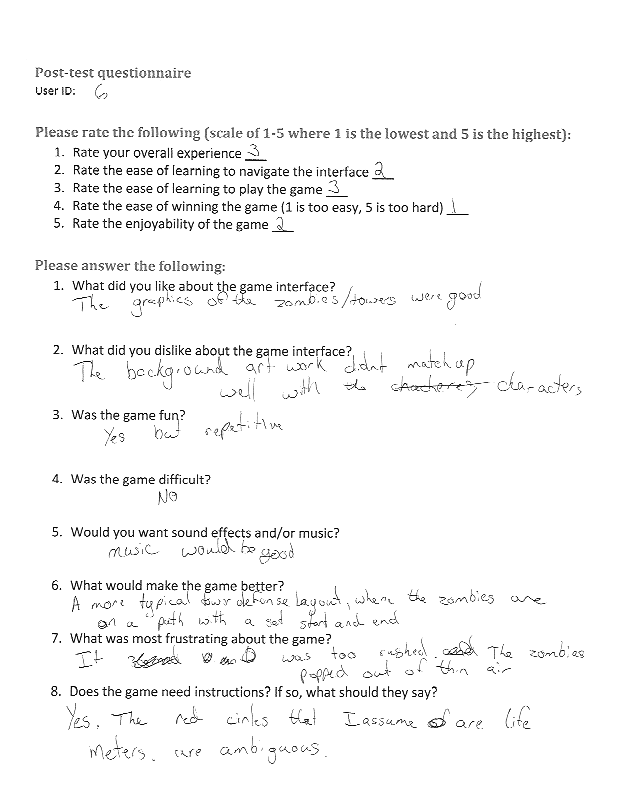 Post-test questionnaire
User ID: 6
Please rate the following (scale of 1-5 where 1 is the lowest and 5 is the highest):
1. Rate your overall experience 3
2. Rate the ease of learning to navigate the interface 2
3. Rate the ease of learning to play the game 3
4. Rate the ease of winning the game (1 is too easy, 5 is too hard) 1
5. Rate the enjoyability of the game 2
Please answer the following:
1. What did you like about the game interface?
The graphics of the zombies/towers were good
2. What did you dislike about the game interface?
The background art work didnt match up
well with the characters
3. Was the game fun?
Yes but repetitive
4. Was the game difficult?
NO
5. Would you want sound effects and/or music?
music would be good
6. What would make the game better?
A more typical towr defense layout, where the zombies are
on a path with a set start and end
7. What was most frustrating about the game?
It was too rushed. The zombies
popped out of thin air
8. Does the game need instructions? If so, what should they say?
Yes, The red circles that I assume are life
meters. are ambiguous.